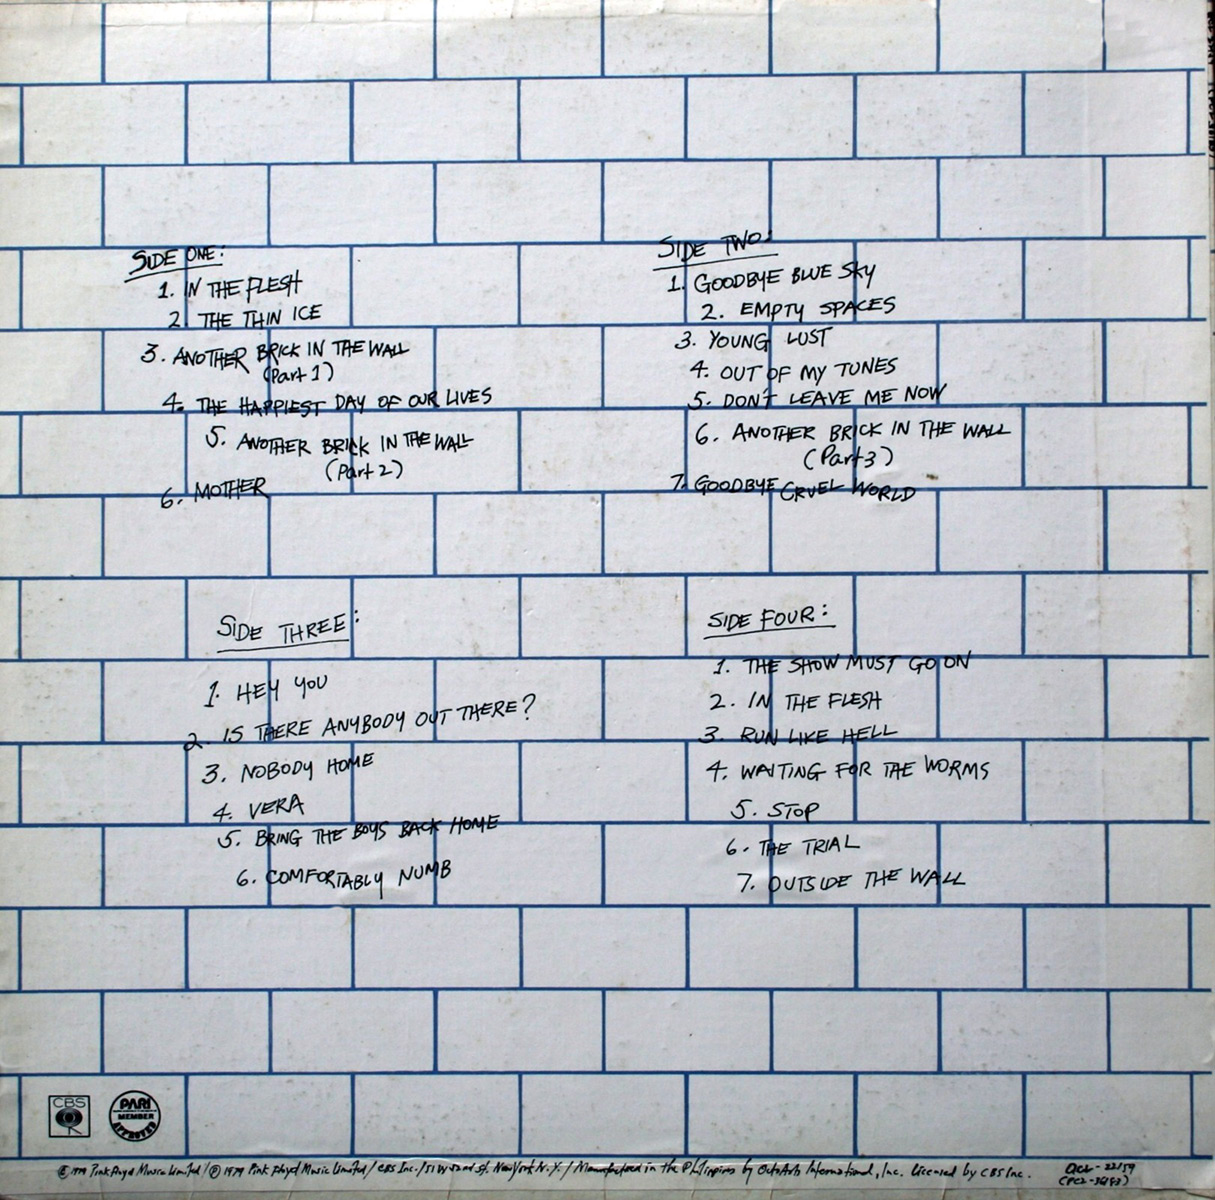 SIDE ONE:
1. IN THE FLESH
2. THE THIN ICE
3. ANOTHER BRICK IN THE WALL
(Part 1)
4. THE HAPPIEST DAY OF OUR LIVES
5. ANOTHER BRICK IN THE WALL
(Part 2)
6. MOTHER
SIDE TWO:
1. GOODBYE BLUE SKY
2. EMPTY SPACES
3. YOUNG LUST
4. OUT OF MY TUNES
5. DON'T LEAVE ME NOW
6. ANOTHER BRICK IN THE WALL
(Part 3)
7. GOODBYE CRUEL WORLD
SIDE THREE:
1. HEY YOU
2. IS THERE ANYBODY OUT THERE?
3. NOBODY HOME
4. VERA
5. BRING THE BOYS BACK HOME
6. COMFORTABLY NUMB
SIDE FOUR:
1. THE SHOW MUST GO ON
2. IN THE FLESH
3. RUN LIKE HELL
4. WAITING FOR THE WORMS
5. STOP
6. THE TRIAL
7. OUTSIDE THE WALL
CBS
PARI
MEMBER
APPROVED
© 1979 Pink Floyd Music Limited / ℗ 1979 Pink Floyd Music Limited / CBS Inc. / 51 W 52nd St. New York N.Y. / Manufactured in the Philippines by OctoArts International, Inc. Licensed by CBS Inc.